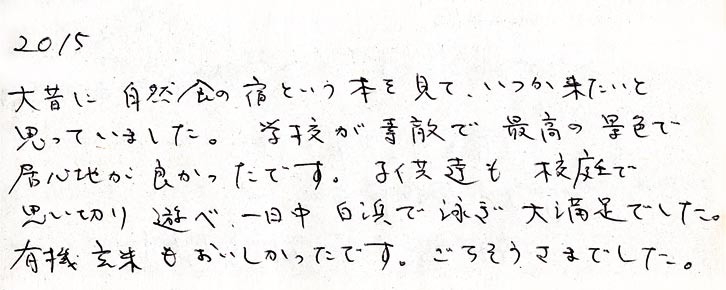 2015
大昔に自然食の宿という本を見て、いつか来たいと
思っていました。学校が素敵で最高の景色で
居心地が良かったです。子供達も校庭で
思い切り遊べ、一日中白浜で泳ぎ大満足でした。
有機玄米もおいしかったです。ごちそうさまでした。